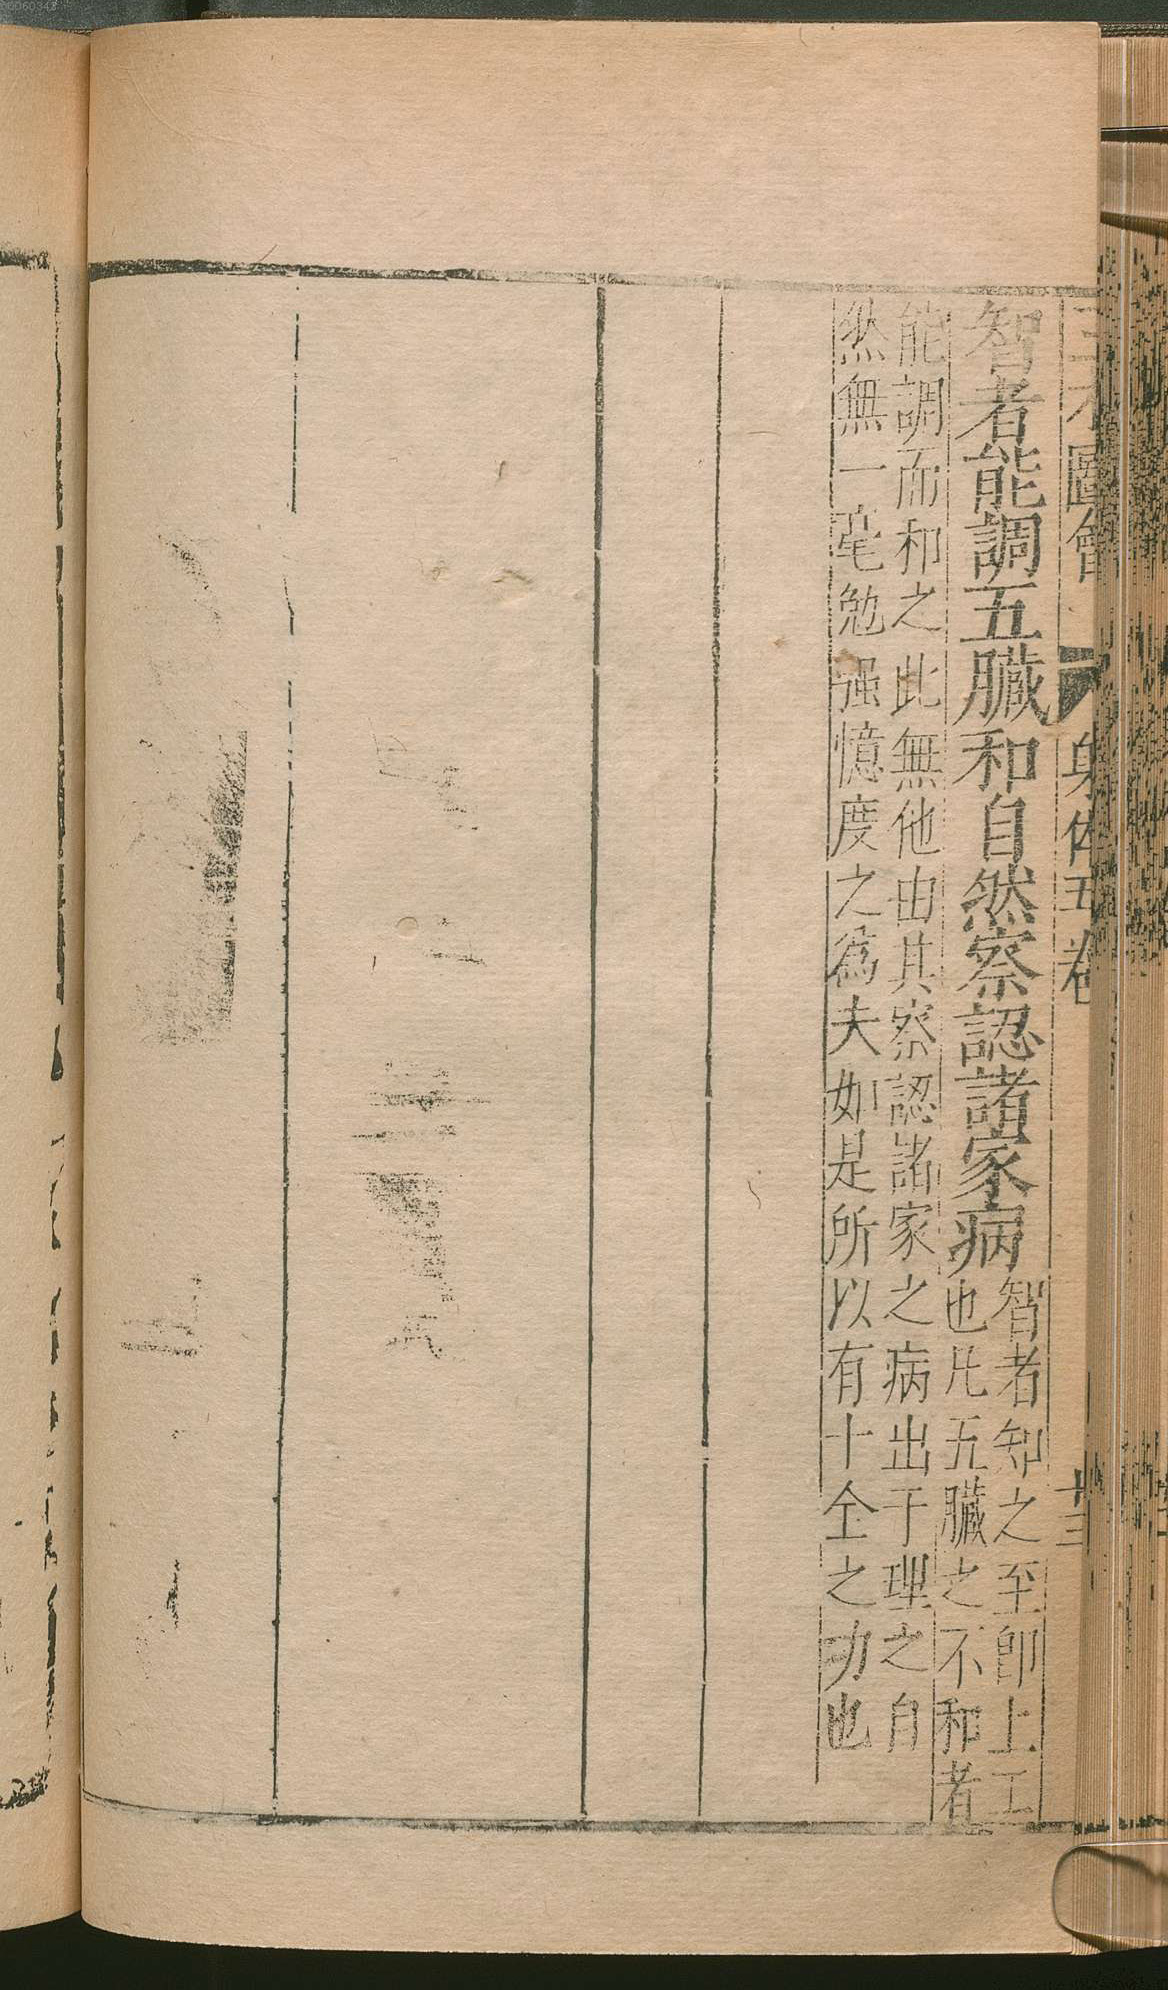 三才圖會 身体五卷 十三
智者能調五臟和自然察認諸家病
智者知之至卽上工
也凡五臟之不和者
能調而和之此無他由其察認諸家之病出于理之自
然無一毫勉强憶度之為夫如是所以有十全之功也